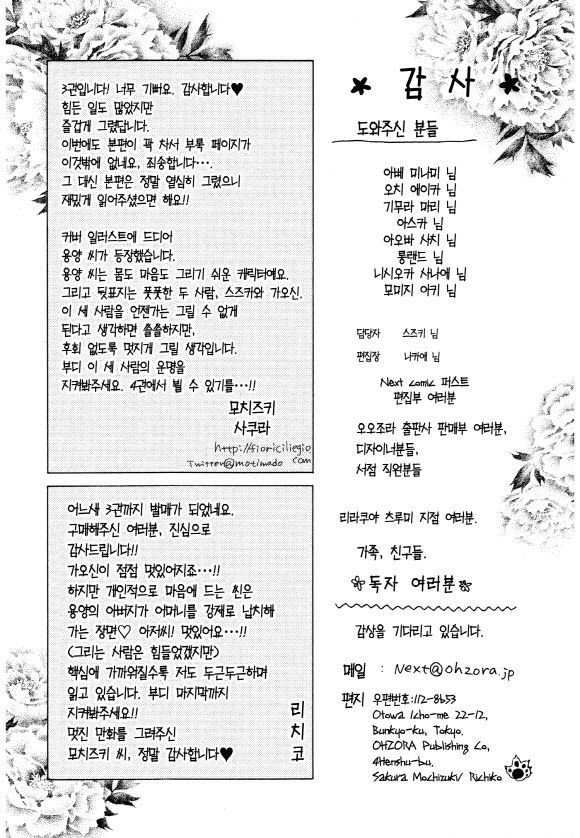 3권입니다! 너무 기뻐요. 감사합니다♥
힘든 일도 많았지만
즐겁게 그렸답니다.
이번에도 본편이 꽉 차서 부록 페이지가
이것밖에 없네요, 죄송합니다···.
그 대신 본편은 정말 열심히 그렸으니
재밌게 읽어주셨으면 해요!!
커버 일러스트에 드디어
용양 씨가 등장했습니다.
용양 씨는 몸도 마음도 그리기 쉬운 캐릭터예요.
그리고 뒷표지는 풋풋한 두 사람, 스즈카와 가오신.
이 세 사람을 언젠가는 그릴 수 없게
된다고 생각하면 쓸쓸하지만,
후회 없도록 멋지게 그릴 생각입니다.
부디 이 세 사람의 운명을
지켜봐주세요. 4권에서 뵐 수 있기를···!!
모치즈키
사쿠라
http://fioriciliegio.
com
Twitter@motimado
어느새 3권까지 발매가 되었네요.
구매해주신 여러분, 진심으로
감사드립니다!!
가오신이 점점 멋있어지죠···!!
하지만 개인적으로 마음에 드는 씬은
용양의 아버지가 어머니를 강제로 납치해
가는 장면♡ 아저씨! 멋있어요···!!
(그리는 사람은 힘들었겠지만)
핵심에 가까워질수록 저도 두근두근하며
읽고 있습니다. 부디 마지막까지
지켜봐주세요!!
멋진 만화를 그려주신
모치즈키 씨, 정말 감사합니다♥
리치코
* 감사 *
도와주신 분들
아베 미나미 님
오치 에이카 님
기무라 마리 님
아스카 님
아오바 사치 님
롱랜드 님
니시오카 사나에 님
모미지 아키 님
담당자 스즈키 님
편집장 나카에 님
Next comic 퍼스트
편집부 여러분
오오조라 출판사 판매부 여러분,
디자이너분들,
서점 직원분들
리라쿠야 츠루미 지점 여러분.
가족, 친구들.
❀독자 여러분❀
감상을 기다리고 있습니다.
메일 : Next@ohzora.jp
편지 우편번호:112-8653
Otowa 1cho-me 22-12,
Bunkyo-ku, Tokyo.
OHZORA Publishing Co,
4Henshu-bu.
Sakura Mochizuki/ Richiko